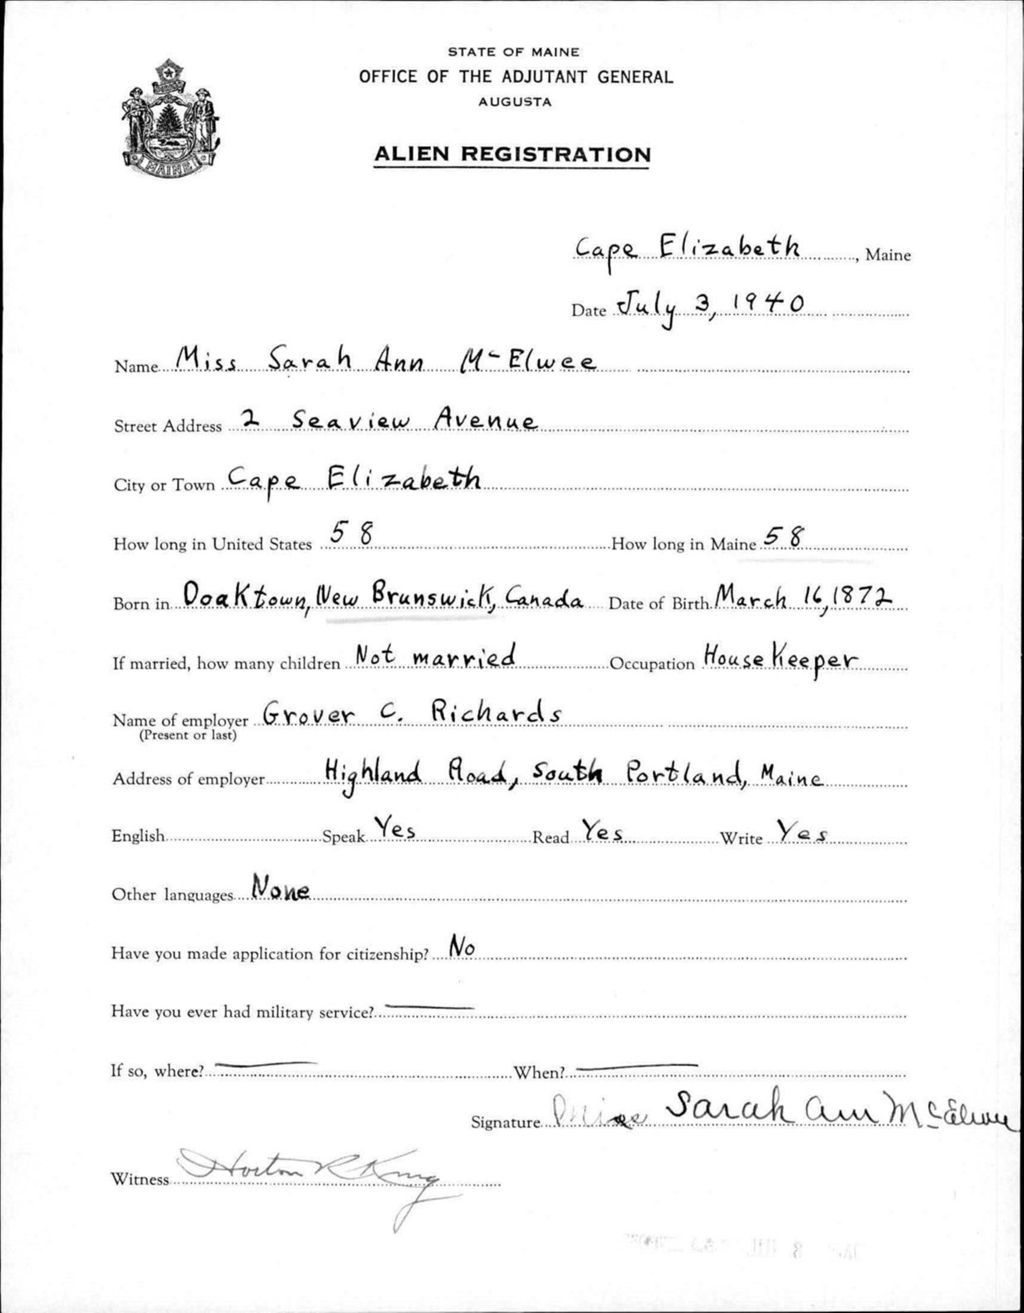 STATE OF MAINE
OFFICE OF THE ADJUTANT GENERAL
AUGUSTA
ALIEN REGISTRATION
MAINE
Cape Elizabeth, Maine
Date July 3, 1940
Name Miss Sarah Ann McElwee
Street Address 2 Seaview Avenue
City or Town Cape Elizabeth
How long in United States 58 How long in Maine 58
Born in Doaktown, New Brunswick, Canada Date of Birth March 16, 1872
If married, how many children Not married Occupation House Keeper
Name of employer Grover C. Richards
(Present or last)
Address of employer Highland Road, South Portland, Maine
English Speak Yes Read Yes Write Yes
Other languages None
Have you made application for citizenship? No
Have you ever had military service? ——
If so, where? —— When? ——
Signature Miss Sarah Ann McElwee
Witness Horton R King